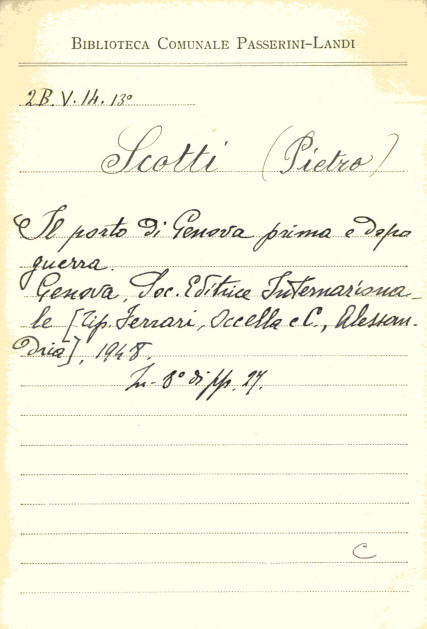 BIBLIOTECA COMUNALE PASSERINI-LANDI
2B. V. 14. 13°
Scotti (Pietro)
Il porto di Genova prima e dopo
guerra.
Genova, Soc. Editrice Internaziona-
le [Tip. Ferrari, Occella e C., Alessan-
dria], 1948.
In-8° di pp. 27.
C